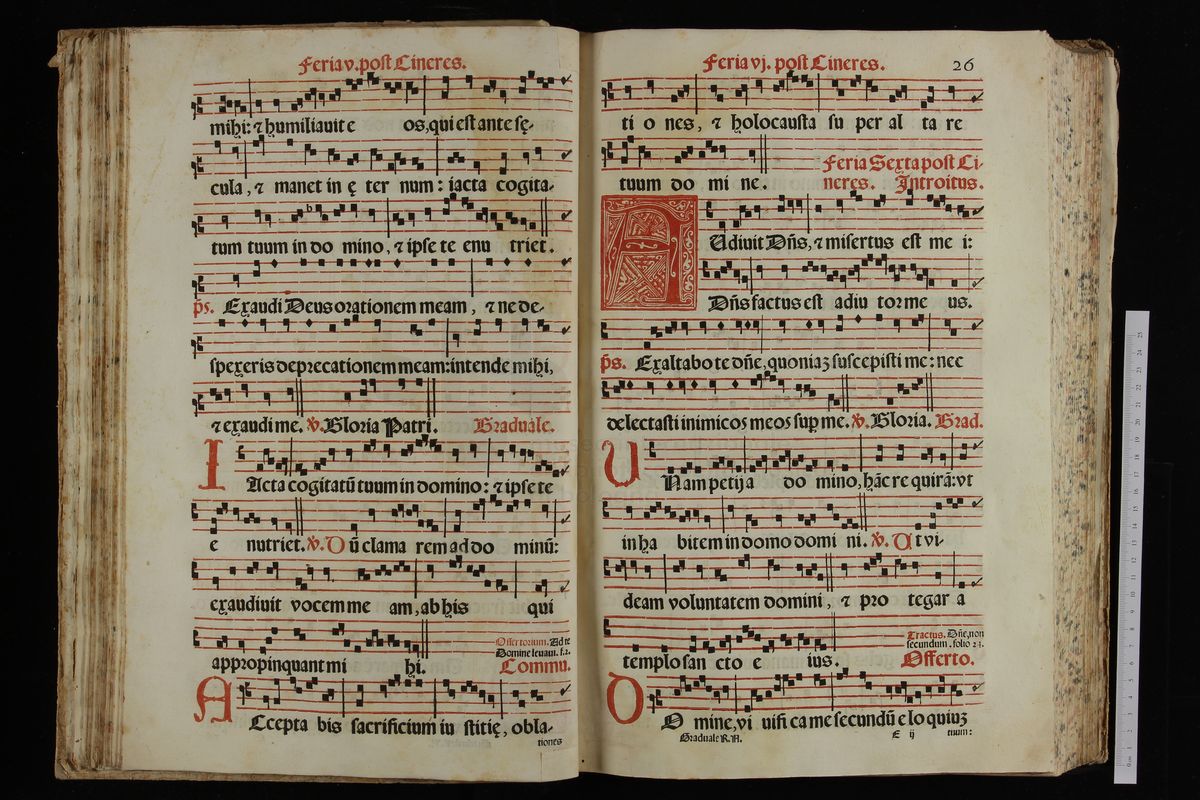 Feria v. post Cineres.
mihi: ⁊ humiliauit e os, qui est ante sę-
cula, ⁊ manet in ę ter num: iacta cogita-
tum tuum in do mino, ⁊ ipse te enu triet.
p̄s. Exaudi Deus orationem meam, ⁊ ne de-
spexeris deprecationem meam: intende mihi,
⁊ exaudi me. ℣. Gloria Patri. Graduale.
IActa cogitatū tuum in domino: ⁊ ipse te
e nutriet. ℣. Dū clama rem ad do minū:
exaudiuit vocem me am, ab his qui
appropinquant mi hi.
Offertorium. Ad te
Domine leuaui. f. 2.
Commu.
ACcepta bis sacrificium iu stitię, obla-
tiones
Feria vj. post Cineres. 26
ti o nes, ⁊ holocausta su per al ta re
tuum do mi ne.
Feria Sexta post Ci-
neres. Introitus.
AUdiuit Dn̄s, ⁊ misertus est me i:
Dn̄s factus est adiu tor me us.
p̄s. Exaltabo te dn̄e, quoniaꝫ suscepisti me: nec
delectasti inimicos meos suꝑ me. ℣. Gloria. Grad.
UNam petij a do mino, hāc re quirā: vt
in ha bitem in domo domi ni. ℣. Ut vi-
deam voluntatem domini, ⁊ pro tegar a
templo san cto e ius.
Tractus. Dn̄e, non
secundum. folio 23.
Offerto.
DO mine, vi uifi ca me secundū eloquiuꝫ
Graduale R.A. E ij tuum: